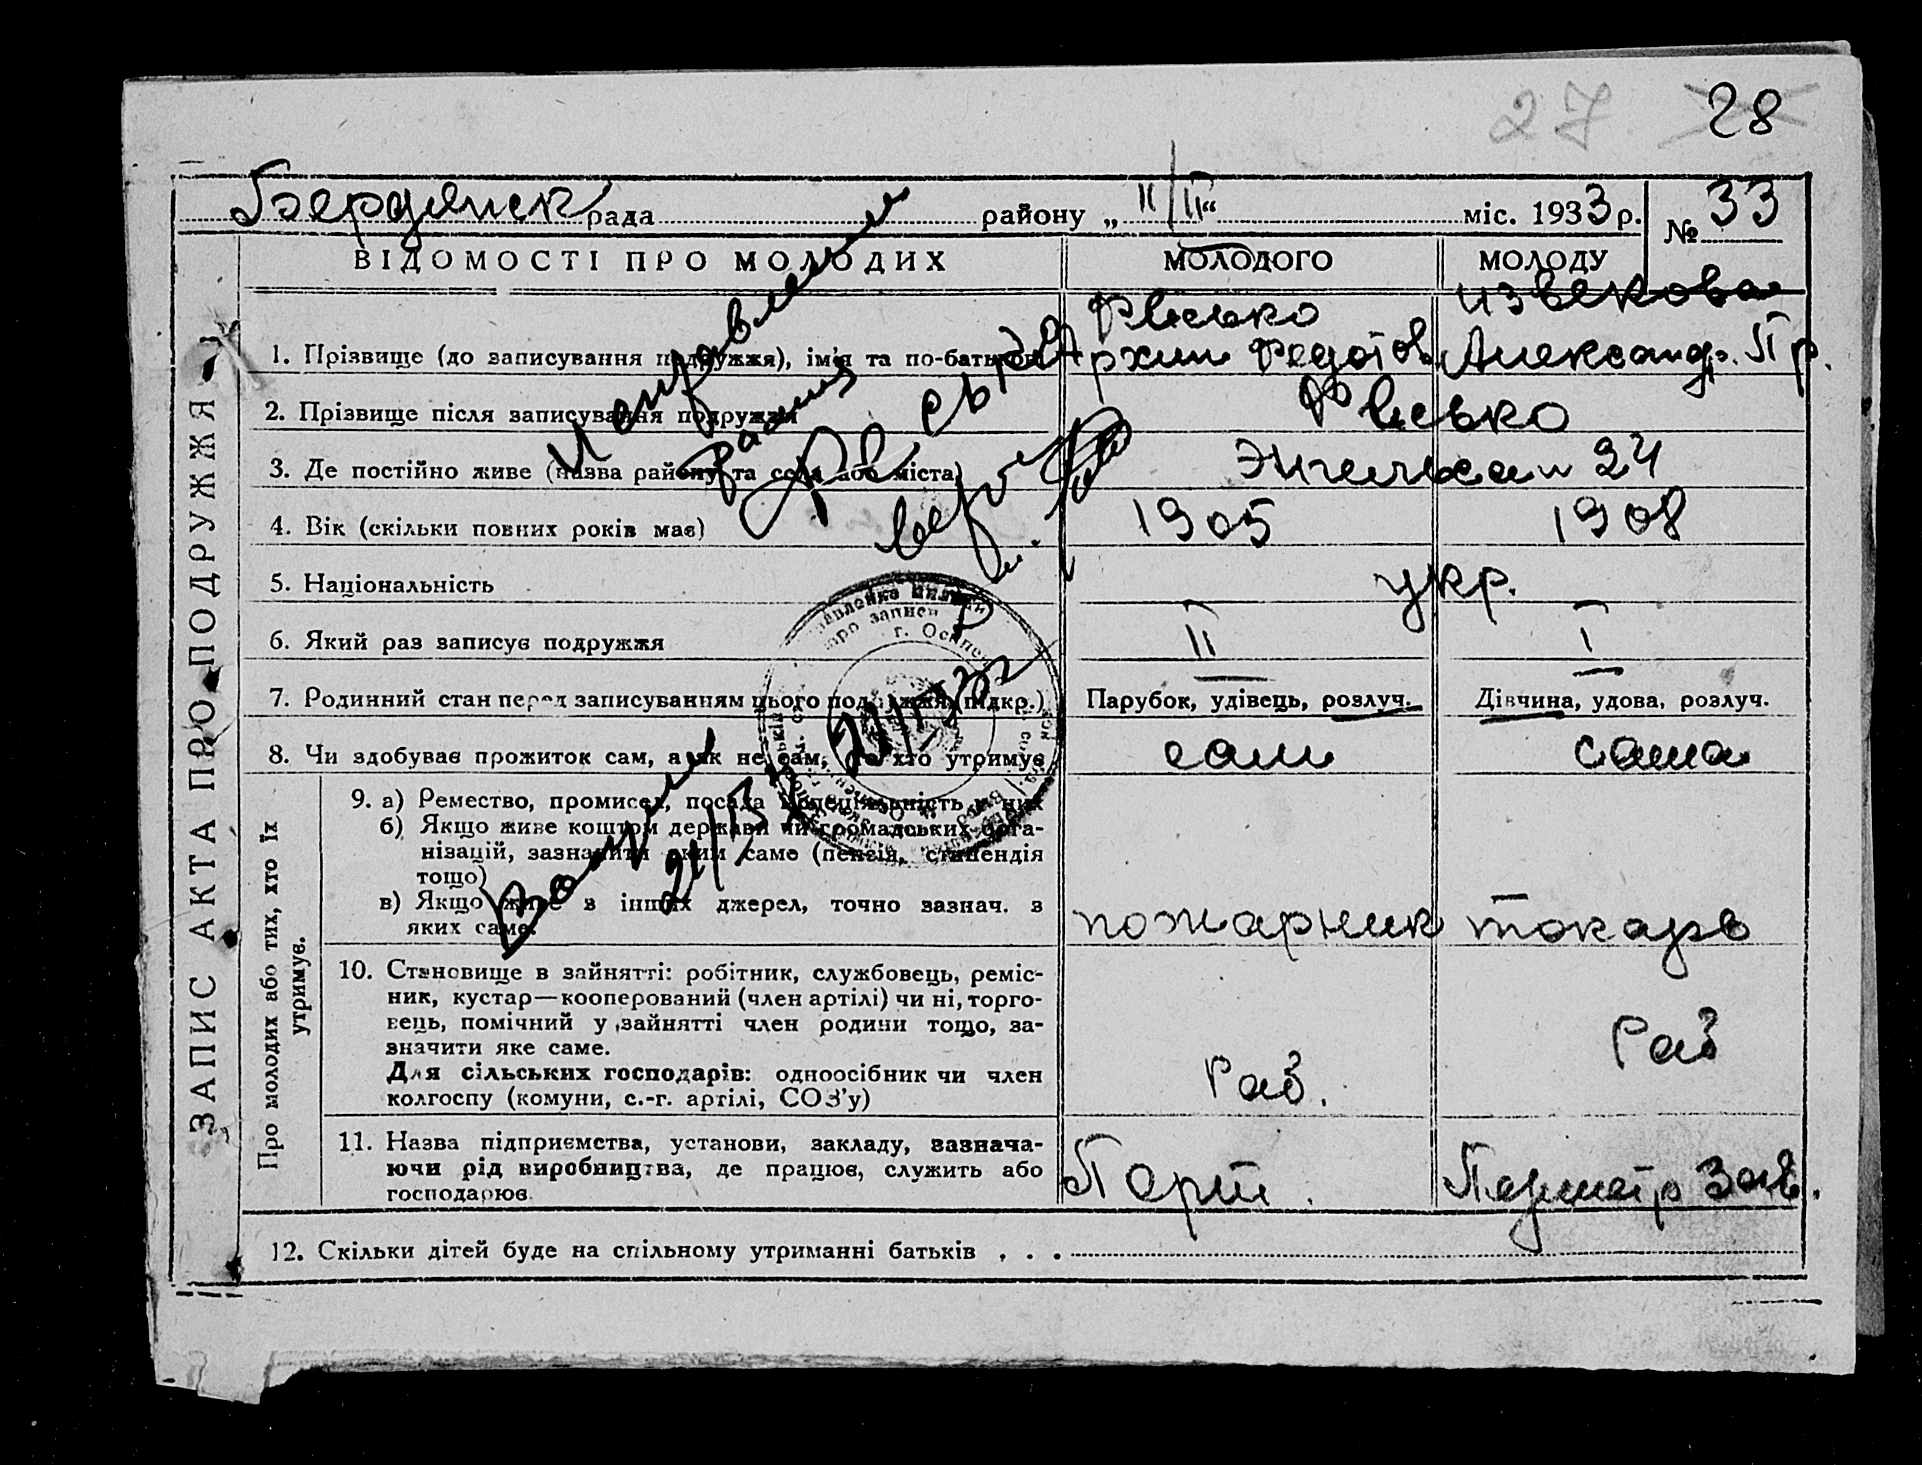 27 28
Бердянск рада району „ 11/II “ міс. 1933 р. № 33
ВІДОМОСТІ ПРО МОЛОДИХ МОЛОДОГО МОЛОДУ
ЗАПИС АКТА ПРО ПОДРУЖЖЯ
1. Прізвище (до записування подружжя), ім'я та по-батькові
Архип Федотов. Александр. Пр.
2. Прізвище після записування подружжя
3. Де постійно живе (назва району та села або міста) 24
4. Вік (скільки повних років має) 1905 1908
5. Національність укр.
6. Який раз записує подружжя II I
7. Родинний стан перед записуванням цього подружжя (підкр.) Парубок, удівець, розлуч. Дівчина, удова, розлуч.
8. Чи здобуває прожиток сам, а як не сам, то хто утримує сам сама
Про молодих або тих, хто їх утримує.
9. а) Ремество, промисел, посада й спеціяльність в них
б) Якщо живе коштом держави чи громадських орга-
нізацій, зазначити яким саме (пенсія, стипендія
тощо)
в) Якщо живе з інших джерел, точно зазнач. з
яких саме. пожарник токарь
10. Становище в зайнятті: робітник, службовець, реміс-
ник, кустар—кооперований (член артілі) чи ні, торго-
вець, помічний у зайнятті член родини тощо, за-
значити яке саме.
Для сільських господарів: одноосібник чи член
колгоспу (комуни, с.-г. артілі, СОЗ'у) Раб. Раб
11. Назва підприємства, установи, закладу, зазнача-
ючи рід виробництва, де працює, служить або
господарює. Порт. Зав.
12. Скільки дітей буде на спільному утриманні батьків . . .
Исправлению
верить